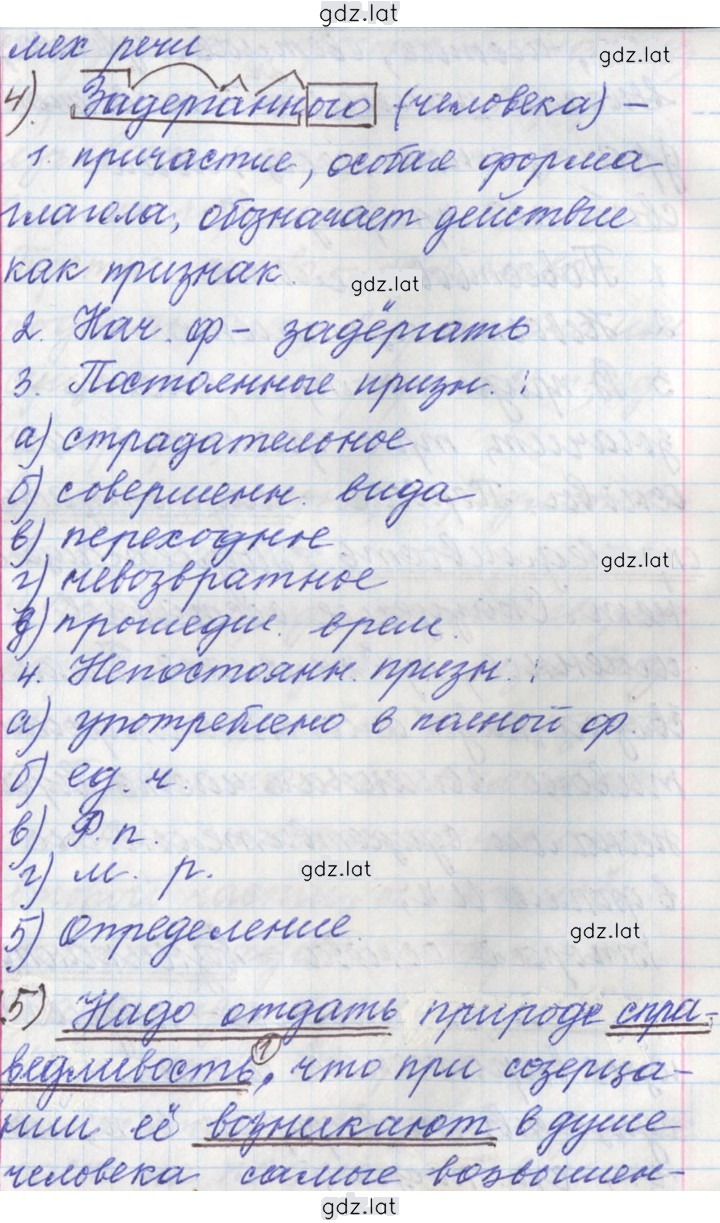 gdz.lat
мех речи.
gdz.lat
4). Задерганного (человека) –
1. причастие, особая форма
глагола, обозначает действие
как признак.
gdz.lat
2. Нач. ф – задёргать
3. Постоянные призн. :
а) страдательное
б) совершенн. вида
в) переходное
gdz.lat
г) невозвратное
д) прошедш. врем.
4. Непостоянн. призн. :
а) употреблено в полной ф.
б) ед. ч.
в) Р п.
г) м. р.
gdz.lat
5) Определение
gdz.lat
5) Надо отдать природе спра-
ведливость, 1 что при созерца-
нии её возникают в душе
человека самые возвышен-
gdz.lat